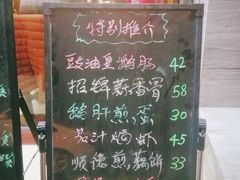 特别推介
豉油皇鹅肠 42
招牌蒜香骨 58
鹅肝煎蛋 30
茄汁焗虾 45
顺德煎藕饼 33